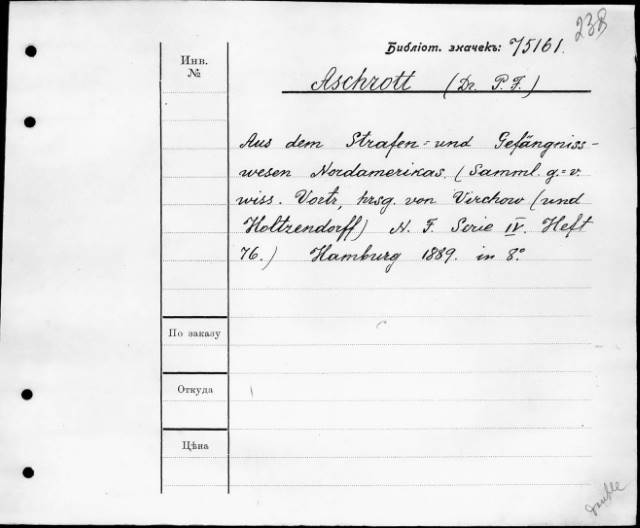 238
Библіот. значекъ: 75161.
Инв.
№
Aschrott (Dr. P. F.)
Aus dem Strafen= und Gefängniss-
wesen Nordamerikas. (Samml. g.=v.
wiss. Vortr, hrsg. von Virchow (und
Holtzendorff) N. F. Serie IV. Heft
76.) Hamburg 1889. in 8°
По заказу
Откуда
Цѣна
double